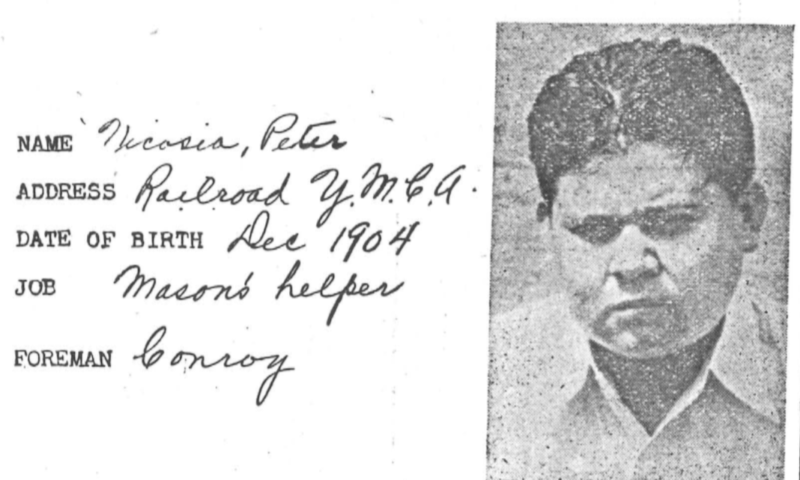 NAME Nicosia, Peter
ADDRESS Railroad Y.M.C.A.
DATE OF BIRTH Dec 1904
JOB Mason's helper
FOREMAN Conroy